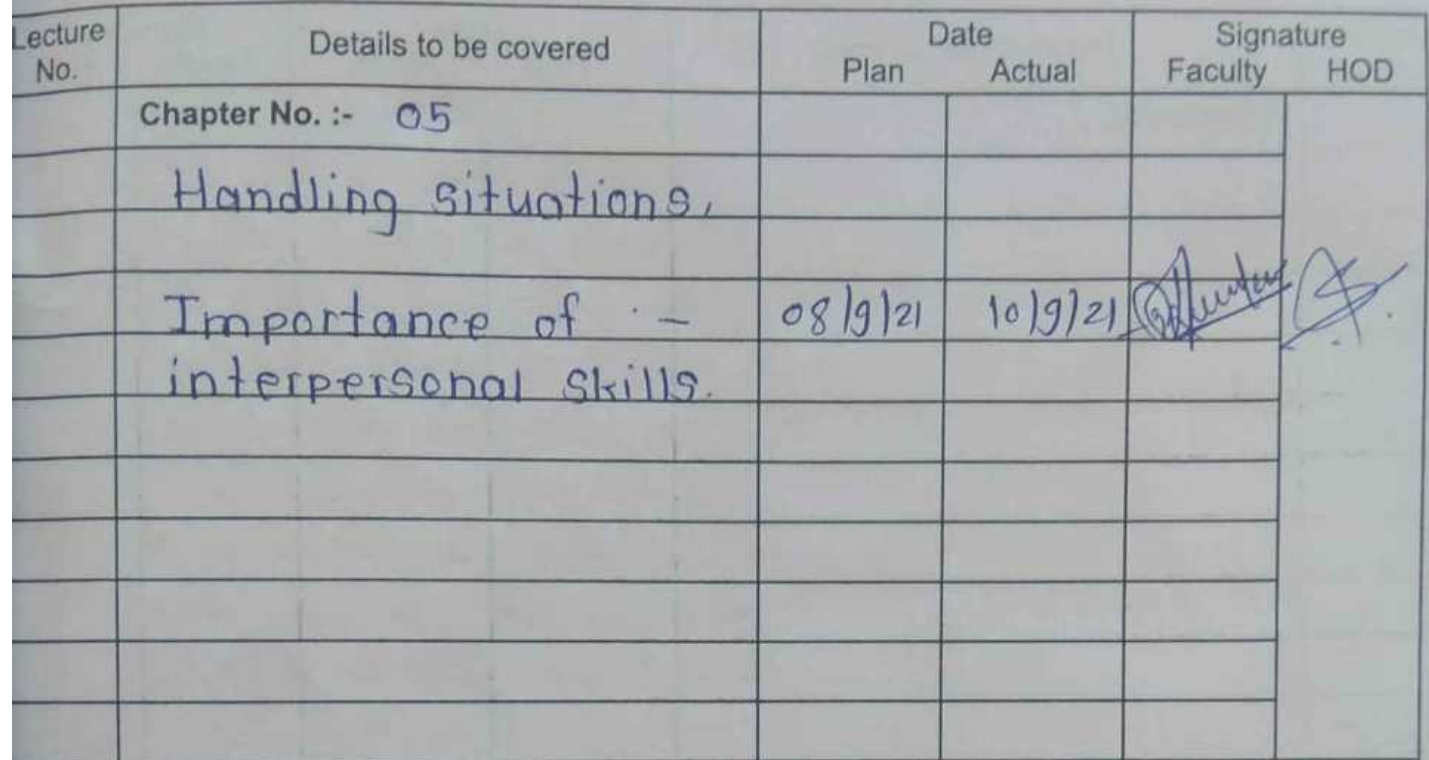 Lecture No. Details to be covered Date Signature
Plan Actual Faculty HOD
Chapter No. :- 05
Handling situations,
Importance of - 08/9/21 10/9/21
interpersonal skills.